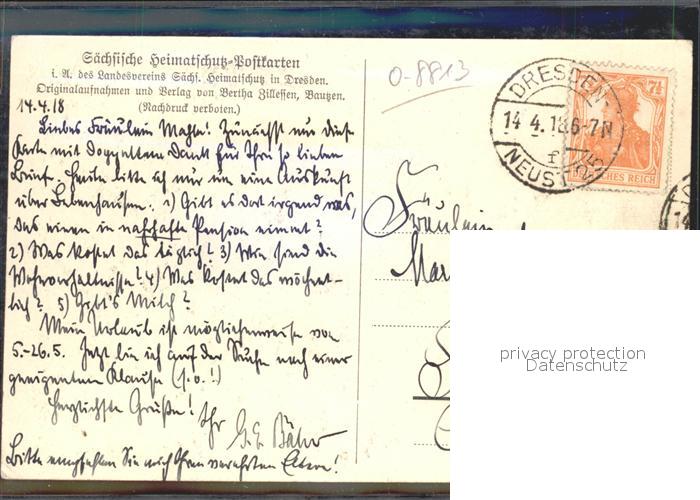 Sächsische Heimatschutz-Postkarten
i. A. des Landesvereins Sächs. Heimatschutz in Dresden.
Originalaufnahmen und Verlag von Bertha Zillessen, Bautzen.
(Nachdruck verboten.)
14.4.18
Liebes Fräulein Mahla! Zunächst nur diese
Karte mit doppeltem Dank für Ihren so lieben
Brief. Heute bitte ich nur um eine Auskunft
über Bebenhausen: 1) Gibt es dort irgend was,
das einen in nahrhafte Pension nimmt?
2) Was kostet das täglich? 3) Wie sind die
Wohnverhältnisse? 4) Was kostet das wöchent-
lich? 5) Gibt's Milch?
Mein Urlaub ist möglicherweise von
5.-26.5. Jetzt bin ich auf der Suche nach einer
geeigneten Klause (s.o.!)
Herzlichste Grüße!
Ihr G.E. Bähr
Bitte empfehlen Sie mich Ihren verehrten Eltern!
0-8813
DRESDEN
14 4.18 6-7N
NEUST. 25
f
7½
DEUTSCHES REICH
Fräulein
Mar
privacy protection
Datenschutz